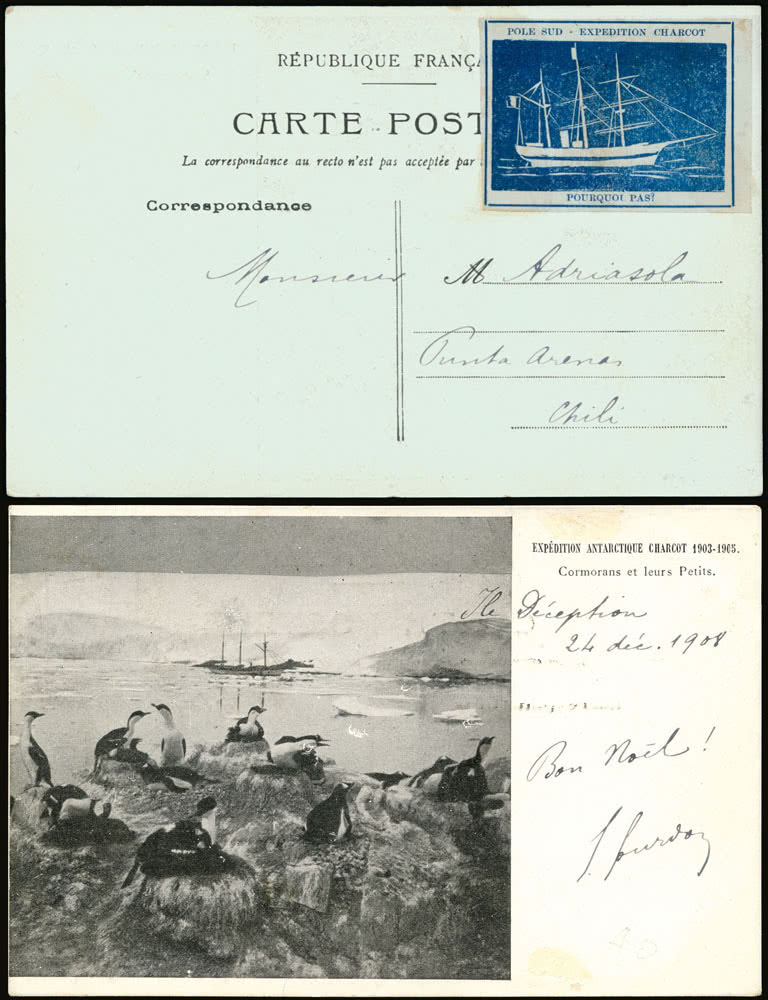 RÉPUBLIQUE FRANÇA
CARTE POST
La correspondance au recto n'est pas acceptée par
POLE SUD - EXPEDITION CHARCOT
POURQUOI PAS?
Correspondance
Monsieur M Adriasola
Punta Arenas
Chili
EXPÉDITION ANTARCTIQUE CHARCOT 1903-1905.
Cormorans et leurs Petits.
Ile Déception
24 déc. 1908
Bon Noël !
Gourdon